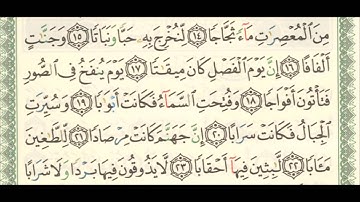 مِنَ الْمُعْصِرَاتِ مَاءً ثَجَّاجًا ١٤ لِّنُخْرِجَ بِهِ حَبًّا وَنَبَاتًا ١٥ وَجَنَّاتٍ
أَلْفَافًا ١٦ إِنَّ يَوْمَ الْفَصْلِ كَانَ مِيقَاتًا ١٧ يَوْمَ يُنفَخُ فِي الصُّورِ
فَتَأْتُونَ أَفْوَاجًا ١٨ وَفُتِحَتِ السَّمَاءُ فَكَانَتْ أَبْوَابًا ١٩ وَسُيِّرَتِ
الْجِبَالُ فَكَانَتْ سَرَابًا ٢٠ إِنَّ جَهَنَّمَ كَانَتْ مِرْصَادًا ٢١ لِّلطَّاغِينَ
مَآبًا ٢٢ لَّابِثِينَ فِيهَا أَحْقَابًا ٢٣ لَّا يَذُوقُونَ فِيهَا بَرْدًا وَلَا شَرَابًا